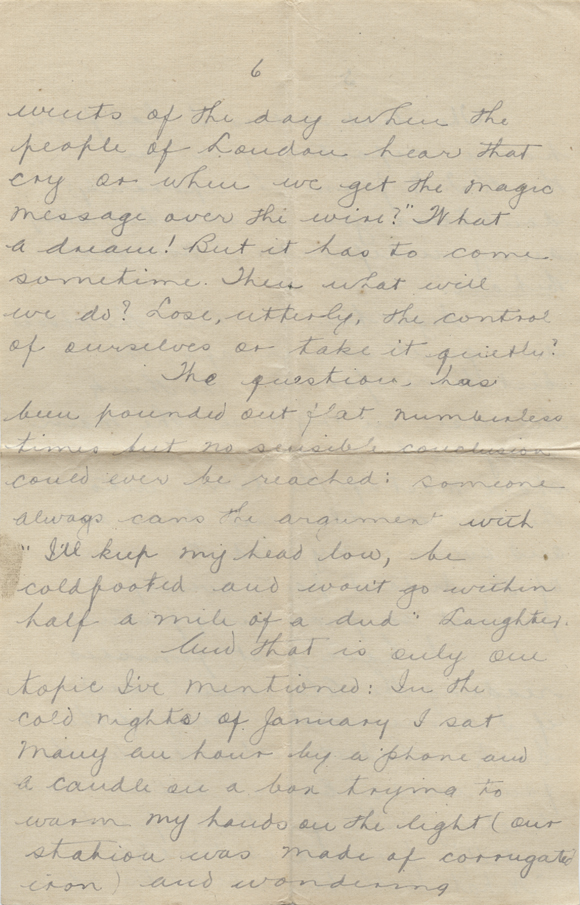 6
events of the day when the
people of London hear that
cry or when we get the magic
message over the wire?" What
a dream! But it has to come
sometime. Then what will
we do? Lose, utterly, the control
of ourselves or take it quietly?
The question has
been pounded out flat numberless
times but no sensible conclusion
could ever be reached: someone
always cans the argument with
"I'll keep my head low, be
coldfooted and won't go within
half a mile of a dud" Laughter.
And that is only one
topic I've mentioned: In the
cold nights of January I sat
many an hour by a 'phone and
a candle on a box trying to
warm my hands on the light (our
station was made of corrugated
iron) and wondering